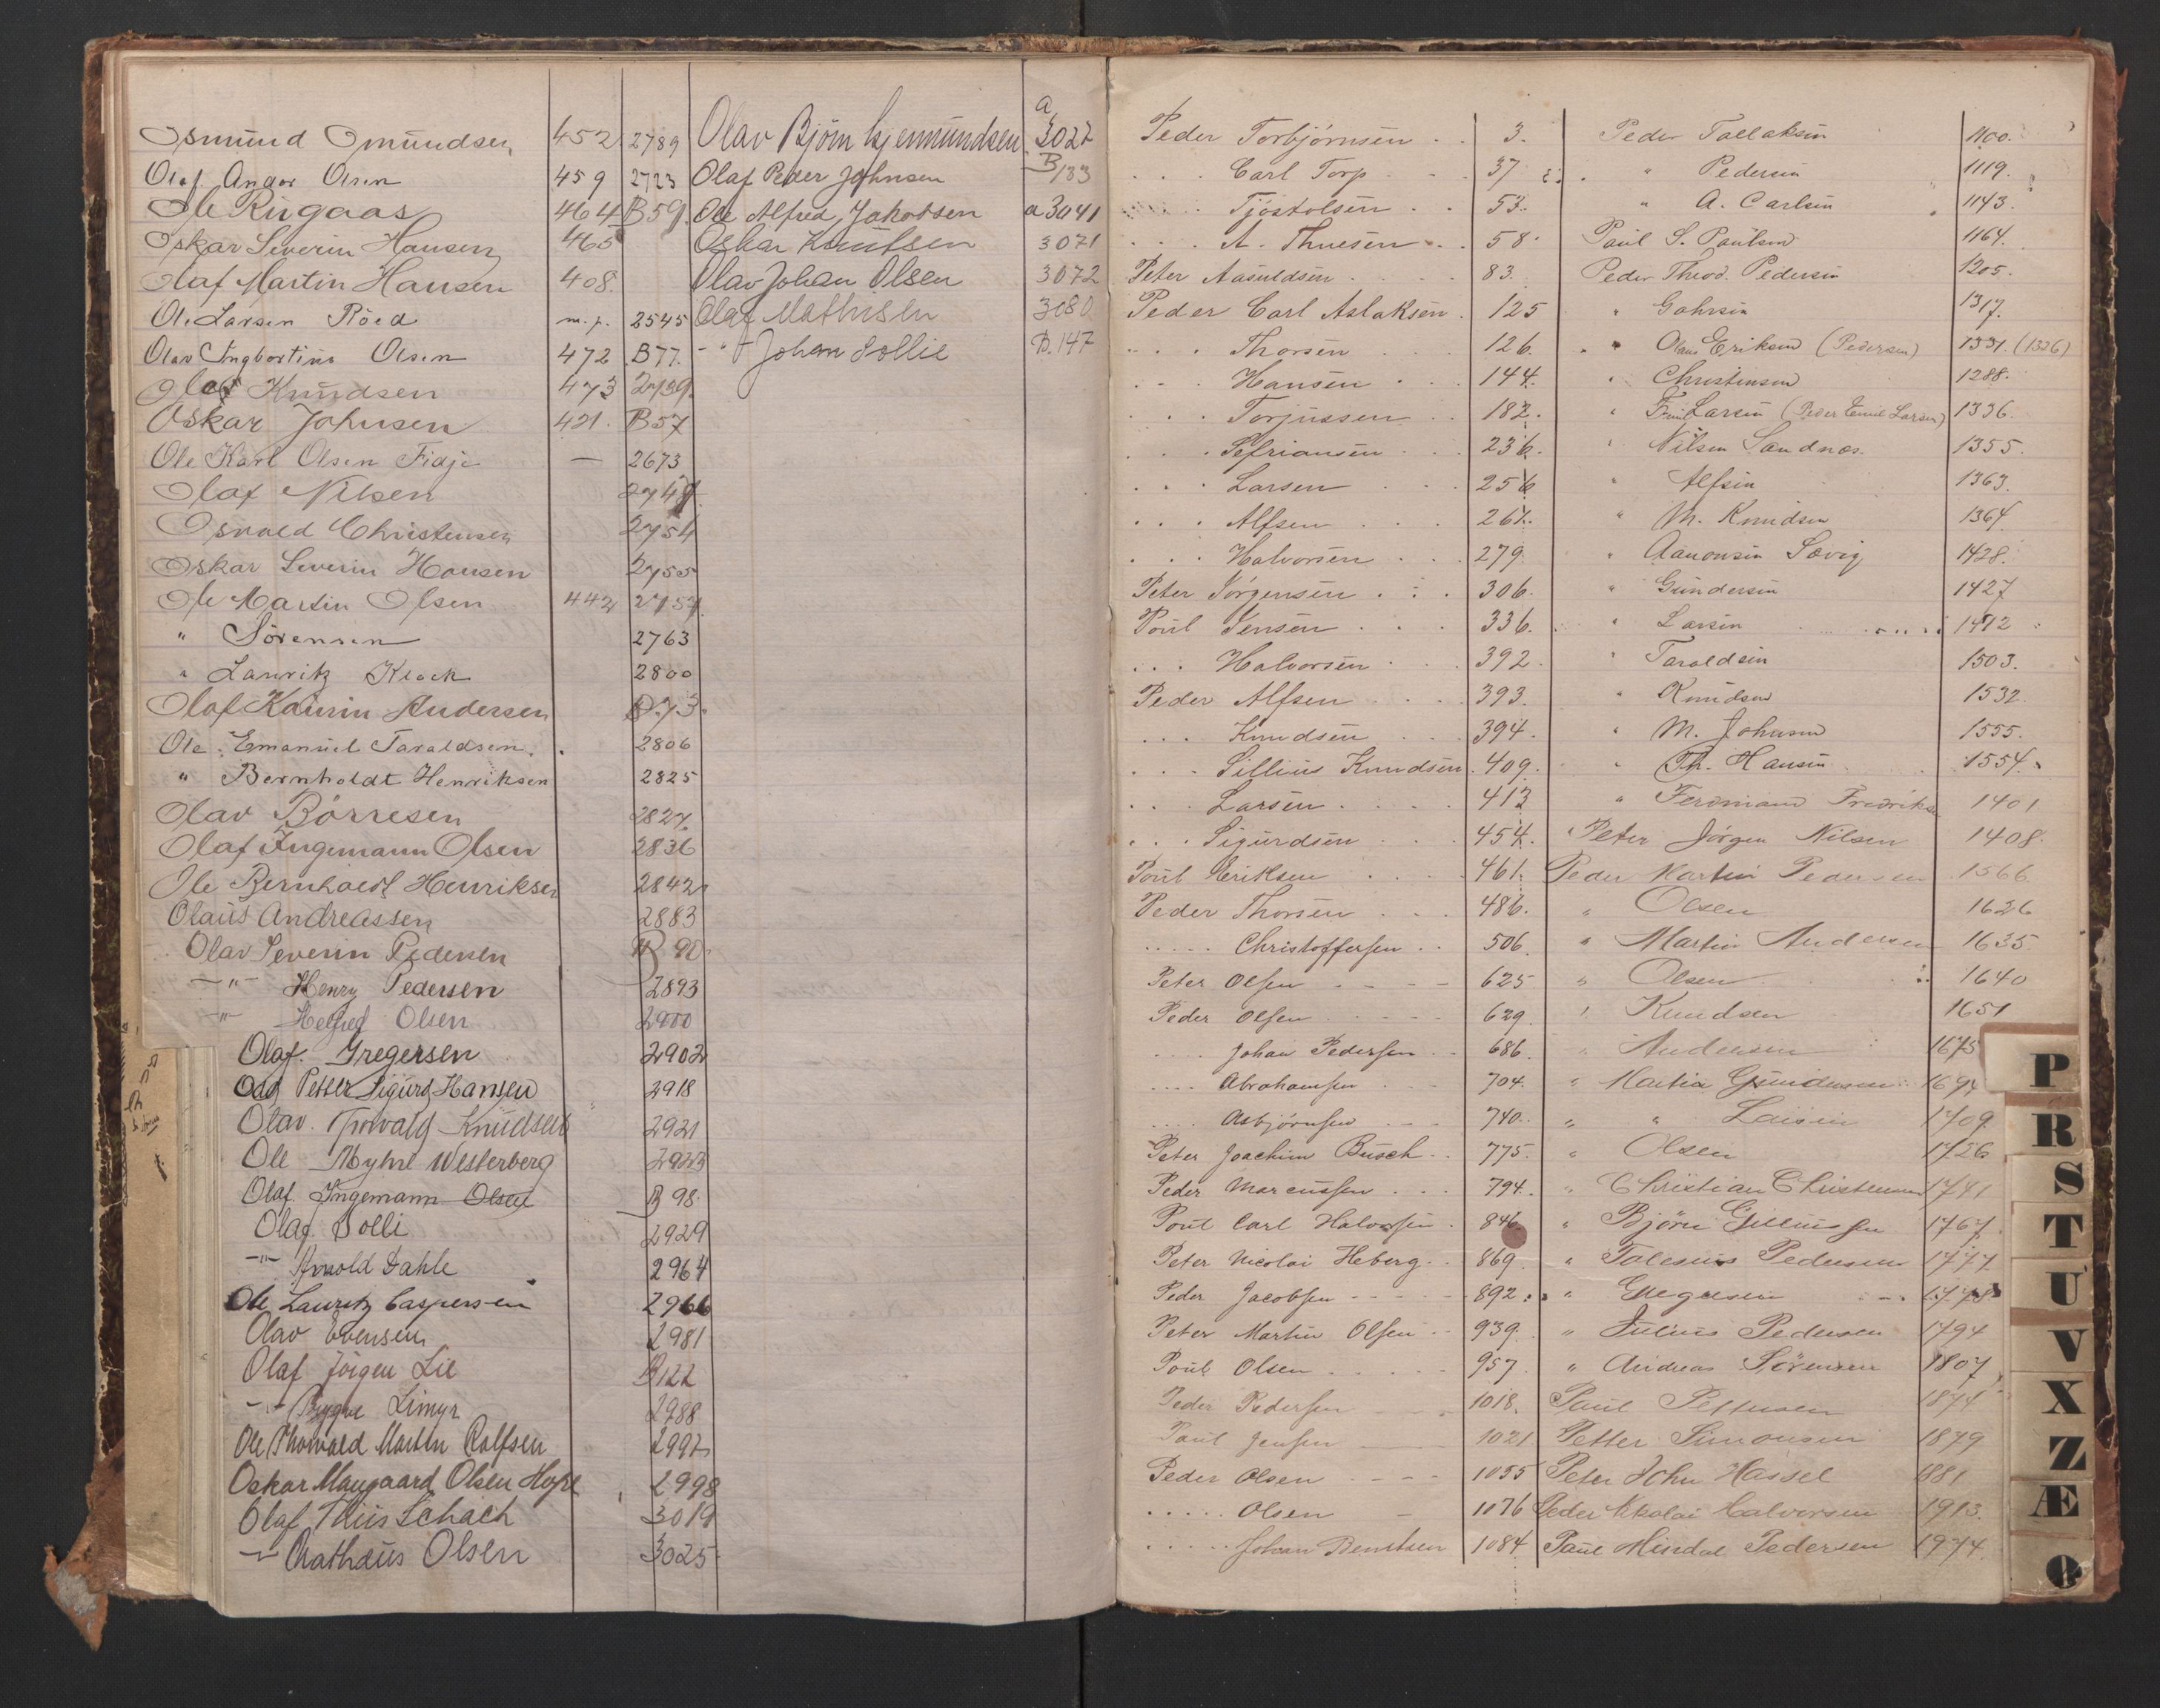 Osmund Omundsen 452 2789
Olaf Andor Olsen 459 2723
Ole Rügaas 464 B59
Oskar Severin Hansen 465
Olaf Martin Hansen 408.
Ole Larsen Röed m.p. 2545
Olav Ingbortius Olsen 472 B77.
Olaf Knudsen 473 2739.
Oskar Johnsen 421. B57
Ole Karl Olsen Fidje — 2673
Olaf Nilsen
Osvald Christensen 2754
Oskar Severin Hansen 2755
Ole Martin Olsen 442 2757.
" Sörensen 2763
" Lauritz Klock 2800
Olaf Kaurin Andersen 73.
Ole Emanuel Taraldsen. 2806
" Bernholdt Henriksen 2825
Olav Börresen 2827.
Olaf Ingemann Olsen 2836
Ole Bernhardt Henriksen 2842
Olaüs Andreassen 2883
Olav Severin Pedersen B 90.
—"— Henry Pedersen 2893
—"— Helfred Olsen 2900
Olaf. Gregersen 2902
Odd Petter Sigurd Hansen 2918
Olav. Thorvald Knüdsen 2921
Ole Myhre Westerberg 2923
Olaf. Ingemann Olsen B 98.
Olaf. Solli 2929
—"— Arnold Dahle 2964
Ole Lauritz Caspersen 2966
Olav Evensen 2981
Olaf Jörgen Lie B122
—"— Limyr 2988
Ole Thorvald Martin Rolfsen 2997
Oskar Maugaard Olsen Hope 2998
Olaf Thiis Schach 3019
—"— Mathæus Olsen 3025
Olav Björn Gjermundsen a 3027
Olaf Peder Johnsen B/133
Ole Alfred Jakobsen a 3041
Oskar Knutsen 3071
Olav Johan Olsen 3072
Olaf Mathisen 3080
—"— Johan Sollie B.147
Peder Torbjørnsen . . 3.
. . . Carl Torp . - . 37
. . . Tjøstolsen . . 53.
. . . A. Thuesen . . 58.
Peter Aasuldsen . . . . 83.
Peder Carl Aslaksen . 125
. . . Thorsen . . . 126.
. . . Hansen . . . 144.
. . . Torjussen . . 182.
. . . Sefriansen . . . 236.
. . . Larsen . . . 256
. . . Alfsen . . . 261.
. . . Halvorsen . . 279.
Peter Jörgensen . . . 306.
Poul Jensen . . . 336.
. . . Halvorsen . . . 392.
Peder Alfsen . . . . 393.
. . . Knudsen . . . 394.
. . . Sillius Knudsen . 409.
. . . Larsen . . . . 413
. . . Sigurdsen . . . 454.
Poul Eriksen . . . . 461.
Peder Thorsen . . . 486.
. . . . . Christoffersen . . 506.
Peter Olsen - - - - 625
Peder Olsen - - - - 629.
. . . . Johan Pedersen . . 686.
. . . . Abrahamsen . . . 704.
. . . . Asbjørnsen - - - 740.
Peter Joachim Busch . . 775.
Peder Marcussen . . . 794.
Poul Carl Halvorsen . 846
Peter Nicolai Heberg . . 869.
Peder Jacobsen - - - - 892.
Peter Martin Olsen . . 939.
Poul Olsen . . . . . 957.
Peder Pedersen 1018.
Paul Jensen 1021
Peder Olsen - - - - 1055
. . . . . Olsen - 1076
. . . . . Johan Berntsen 1084
Peder Tallaksen 1100.
" Pedersen 1119.
" A. Carlsen 1143.
Paul S. Paulsen 1164.
Peder Theod. Pedersen 1205.
" Gahrsen 1317.
" Olaus Eriksen (Pedersen) 1331. (1326)
" Christensen 1288.
" Emil Larsen (Peder Emil Larsen) 1336.
" Nilsen Sandnæs. 1355.
" Alfsen 1363.
" M. Knudsen 1364.
" Aanonsen Sævig 1428.
" Gundersen 1427
" Larsen 1472
" Taraldsen 1503.
" Knudsen 1532.
" M. Johnsen 1555.
" Th. Hansen 1554.
" Ferdinand Fredriks 1401
Peter Jörgen Nilsen 1408.
Peder Martin Pedersen 1566
" Olsen 1626
" Martin Andersen 1635.
" Olsen 1640
" Knudsen 1651
" Andersen 1675
" Martin Gundersen 1694
" " Larsen 1709
" Olsen 1726
" Christian Christensen 1741
" Björn Gilliussen 1767.
" Tolesius Pedersen 1777
" Gregersen
" Julius Pedersen 1794
" Andreas Sörensen 1807
Paul Pettersen 1874
Petter Simonsen 1879
Peter John Hassel 1881
Peder Nikolai Halvorsen 1913.
Paul Mindal Pedersen 1974.
P
R
S
T
U
V
X
Z
Æ
Ø